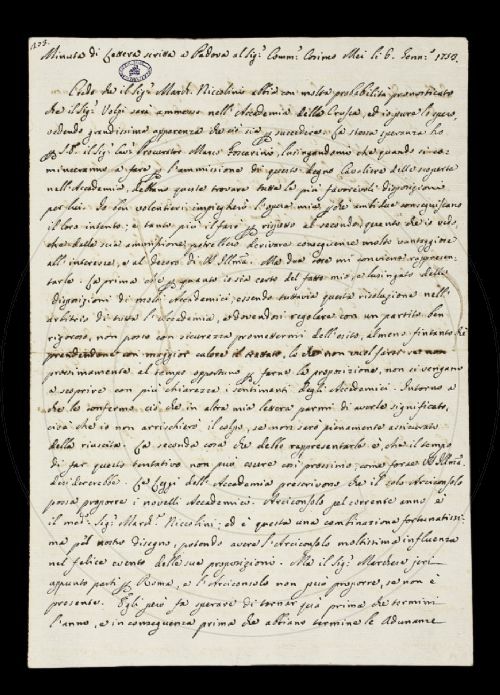 103.
Minuta di Lettera scritta a Padova al Sig.r Comm.r Cosimo Mei li 6. Genn.o 1750.
Credo che il Sig.r March. Niccolini abbia con molta probabilità pronosticato
che il Sig.r Volpi sarà ammesso nell'Accademia della Crusca, ed io pure lo spero,
vedendo grandissima apparenza che ciò sia p succedere. La stessa speranza ho
p S.E. il Sig.r Cav.r Procurator Marco Foscarino, lusingandomi che quando si co-
mineranno a fare p l'ammissione di questo degno Cavaliere delle scoperte
nell'Accademia, debbano queste trovare tutte le più favorevoli disposizioni
per lui. Io ben volentieri impiegherò l'opera mia p che ambidue conseguiscano
il loro intento; e tanto più il farò p rispetto al secondo, quanto che io vedo,
che dalla sua ammissione potrebbero derivare conseguenze molto vantaggiose
all'interesse, e al decoro di VS. Illma. Ma due cose mi conviene rappresen-
tarle. La prima che p quanto io sia certo del fatto mio, e lusingato delle
disposizioni di molti Accademici; essendo tuttavia questa risoluzione nell'
arbitrio di tutta l'Accademia, e dovendosi regolare con un partito ben
rigoroso, non posso con sicurezza promettermi dell'esito, almeno fintanto che
prendendone con maggior calore il trattato, lo che non vuol farsi se non
prossimamente al tempo opportuno p farne la proposizione, non si vengano
a scoprire con più chiarezza i sentimenti degli Accademici. Intorno a
che le confermo ciò che in altra mia lettera parmi di averle significato,
cioè che io non arrischierò il colpo, se non sarò pienamente assicurato
della riuscita. La seconda cosa che debbo rappresentarle è, che il tempo
di far questo tentativo non può essere così prossimo, come forse VS. Illma.
desidererebbe. Le Leggi dell'Accademia prescrivono che il solo Arciconsolo
possa proporre i novelli Accademici. Arciconsolo pel corrente anno è
il med.o Sig.r March. Niccolini; ed è questa una combinazione fortunatissi-
ma pel nostro disegno, potendo avere l'Arciconsolo moltissima influenza
nel felice evento delle sue proposizioni. Ma il Sig.r Marchese jeri
appunto partì p Roma, e l'Arciconsolo non può proporre, se non è
presente. Egli però fa sperare di tornar quà prima che termini
l'anno, e in conseguenza prima che abbiano termine le Adunanze